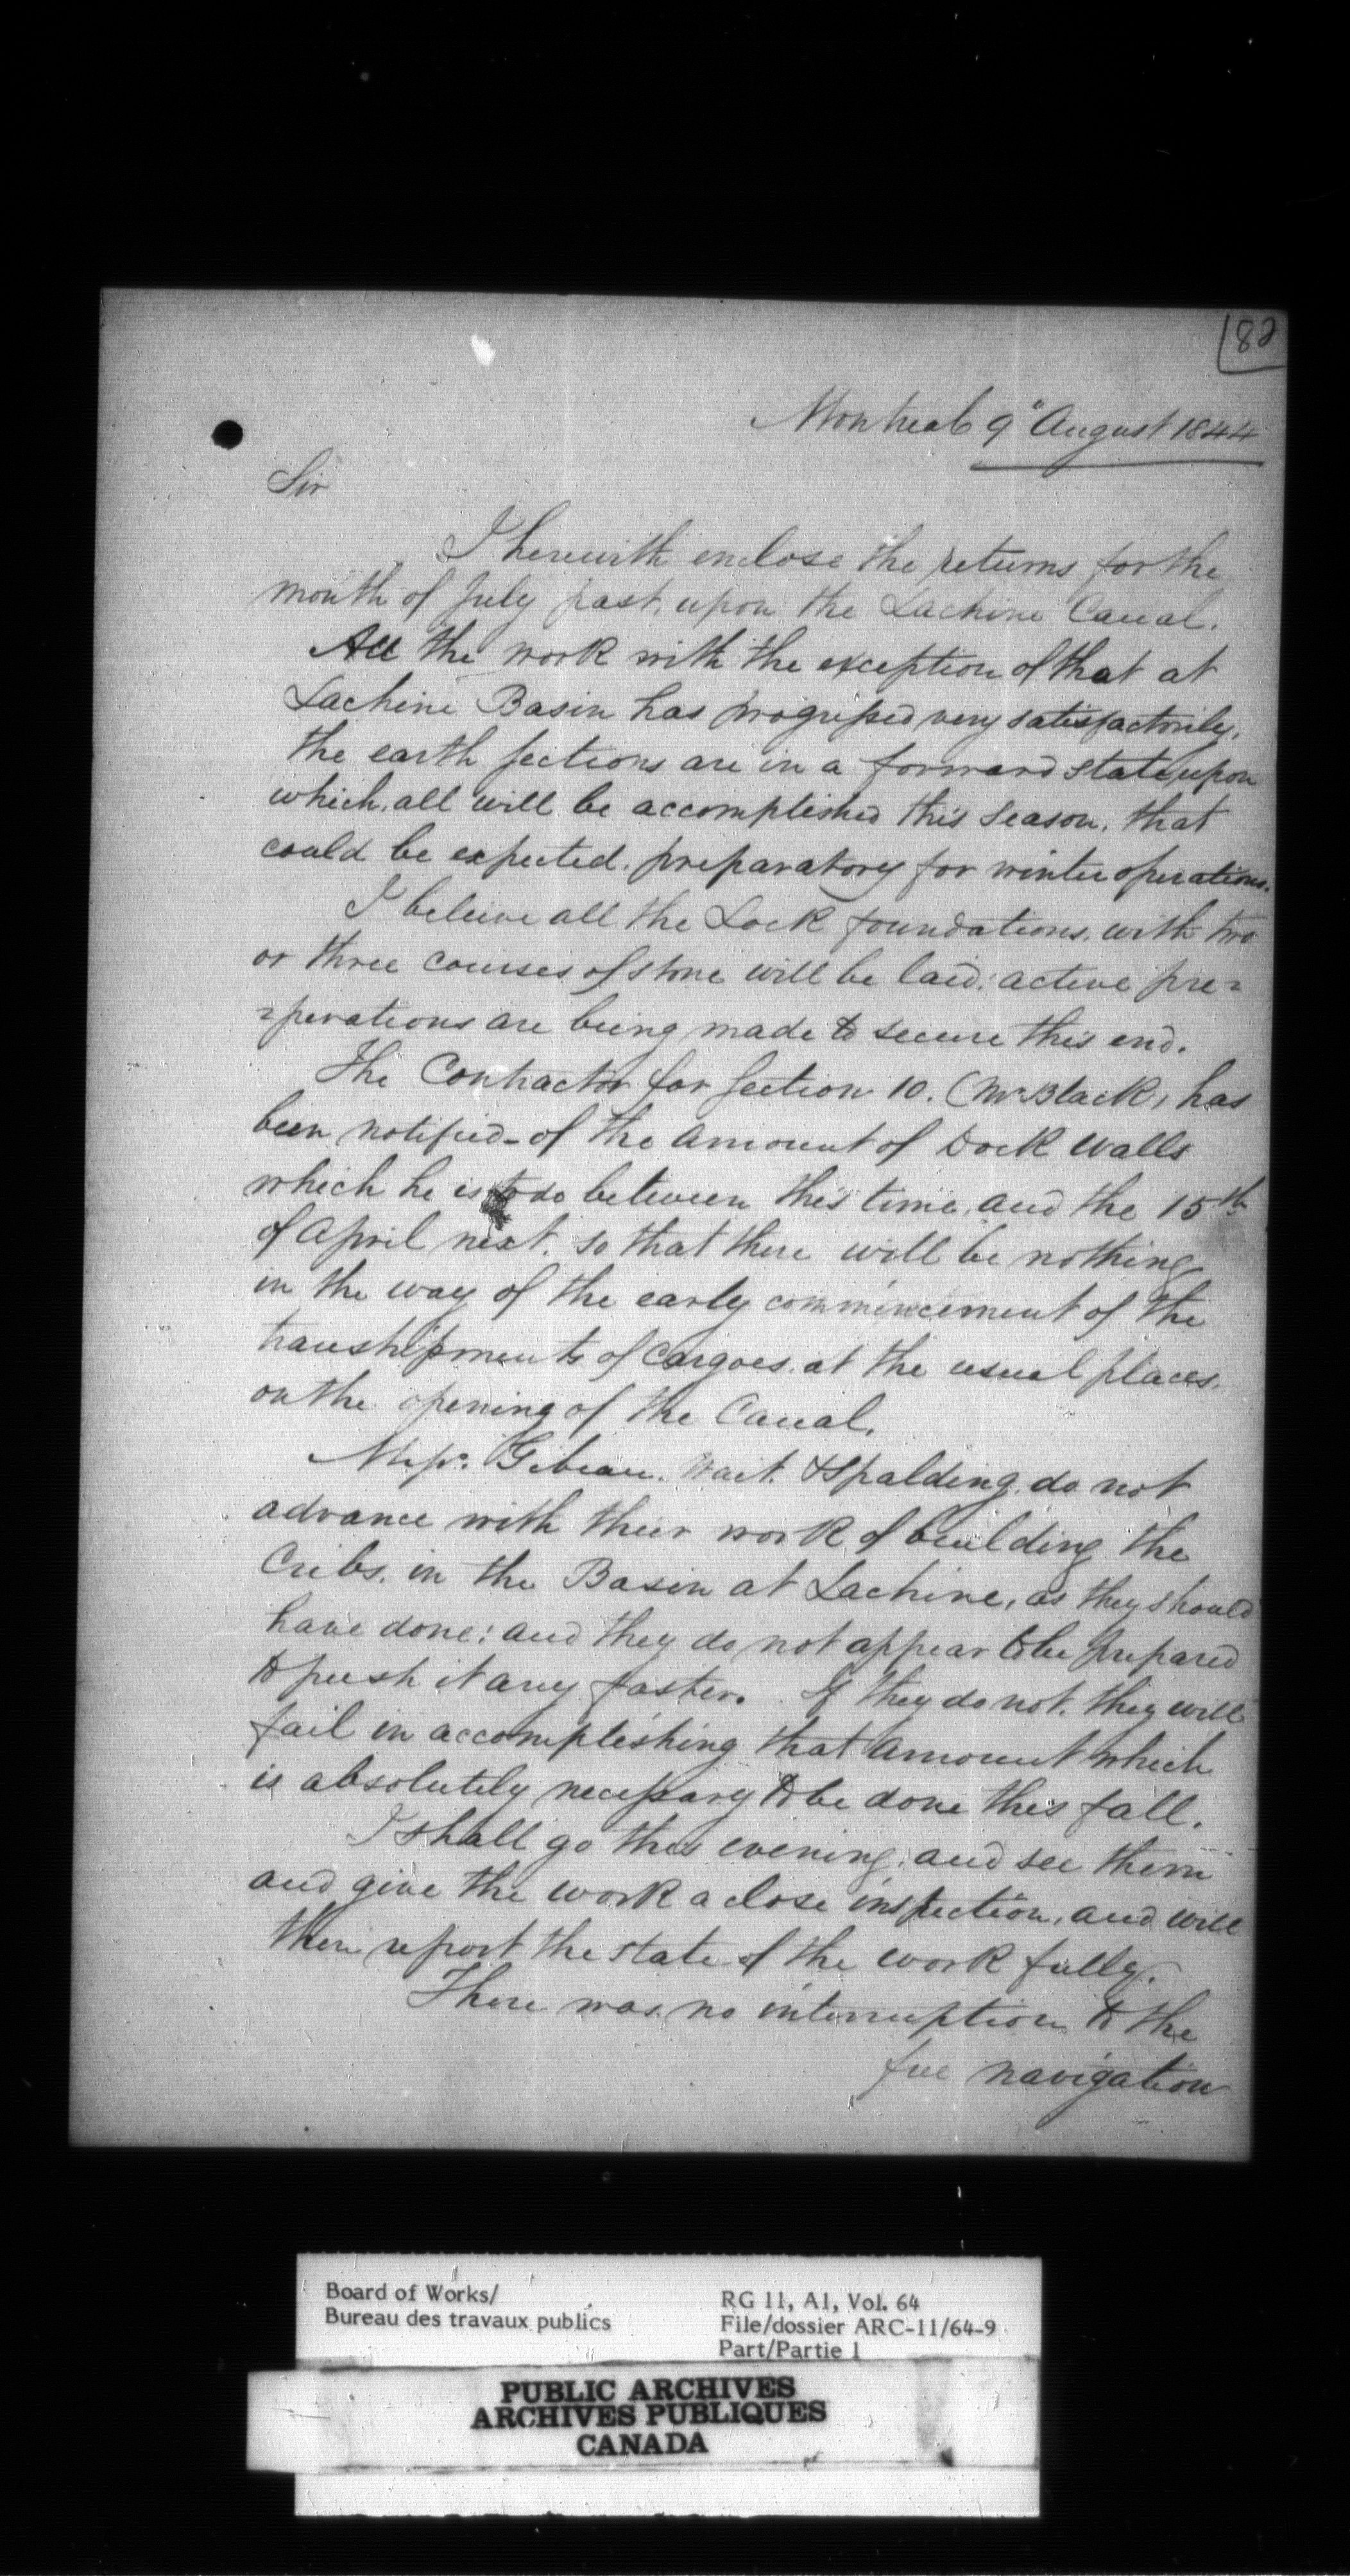 182
Montreal 9" August 1844
Sir
I herewith enclose the returns for the
month of July past, upon the Lachine Canal.
All the work with the exception of that at
Lachine Basin has progressed very satisfactorily,
the earth sections are in a forward state, upon
which, all will be accomplished this season, that
could be expected, preparatory for winter operations.
I beleive all the Lock foundations, with two
or three courses of stone will be laid: active pre=
=perations are being made to secure this end.
The Contractor for Section 10. (Mr Black, has
been notified of the amount of Dock walls
which he is to do between this time, and the 15th
of April next, so that there will be nothing
in the way of the early commencement of the
transhipments of cargoes, at the usual places,
on the opening of the Canal.
Messrs. Gibeau, Wait, & Spalding, do not
advance with their work of building the
Cribs, in the Basin at Lachine, as they should
have done: and they do not appear to be prepared
to push it any faster. If they do not, they will
fail in accomplishing that amount which
is absolutely necessary to be done this fall.
I shall go this evening, and see them
and give the work a close inspection, and will
then report the state of the work fully.
There was no interruption to the
free navigation
Board of Works/
Bureau des travaux publics
RG 11, A1, Vol. 64
File/dossier ARC-11/64-9
Part/Partie 1
PUBLIC ARCHIVES
ARCHIVES PUBLIQUES
CANADA